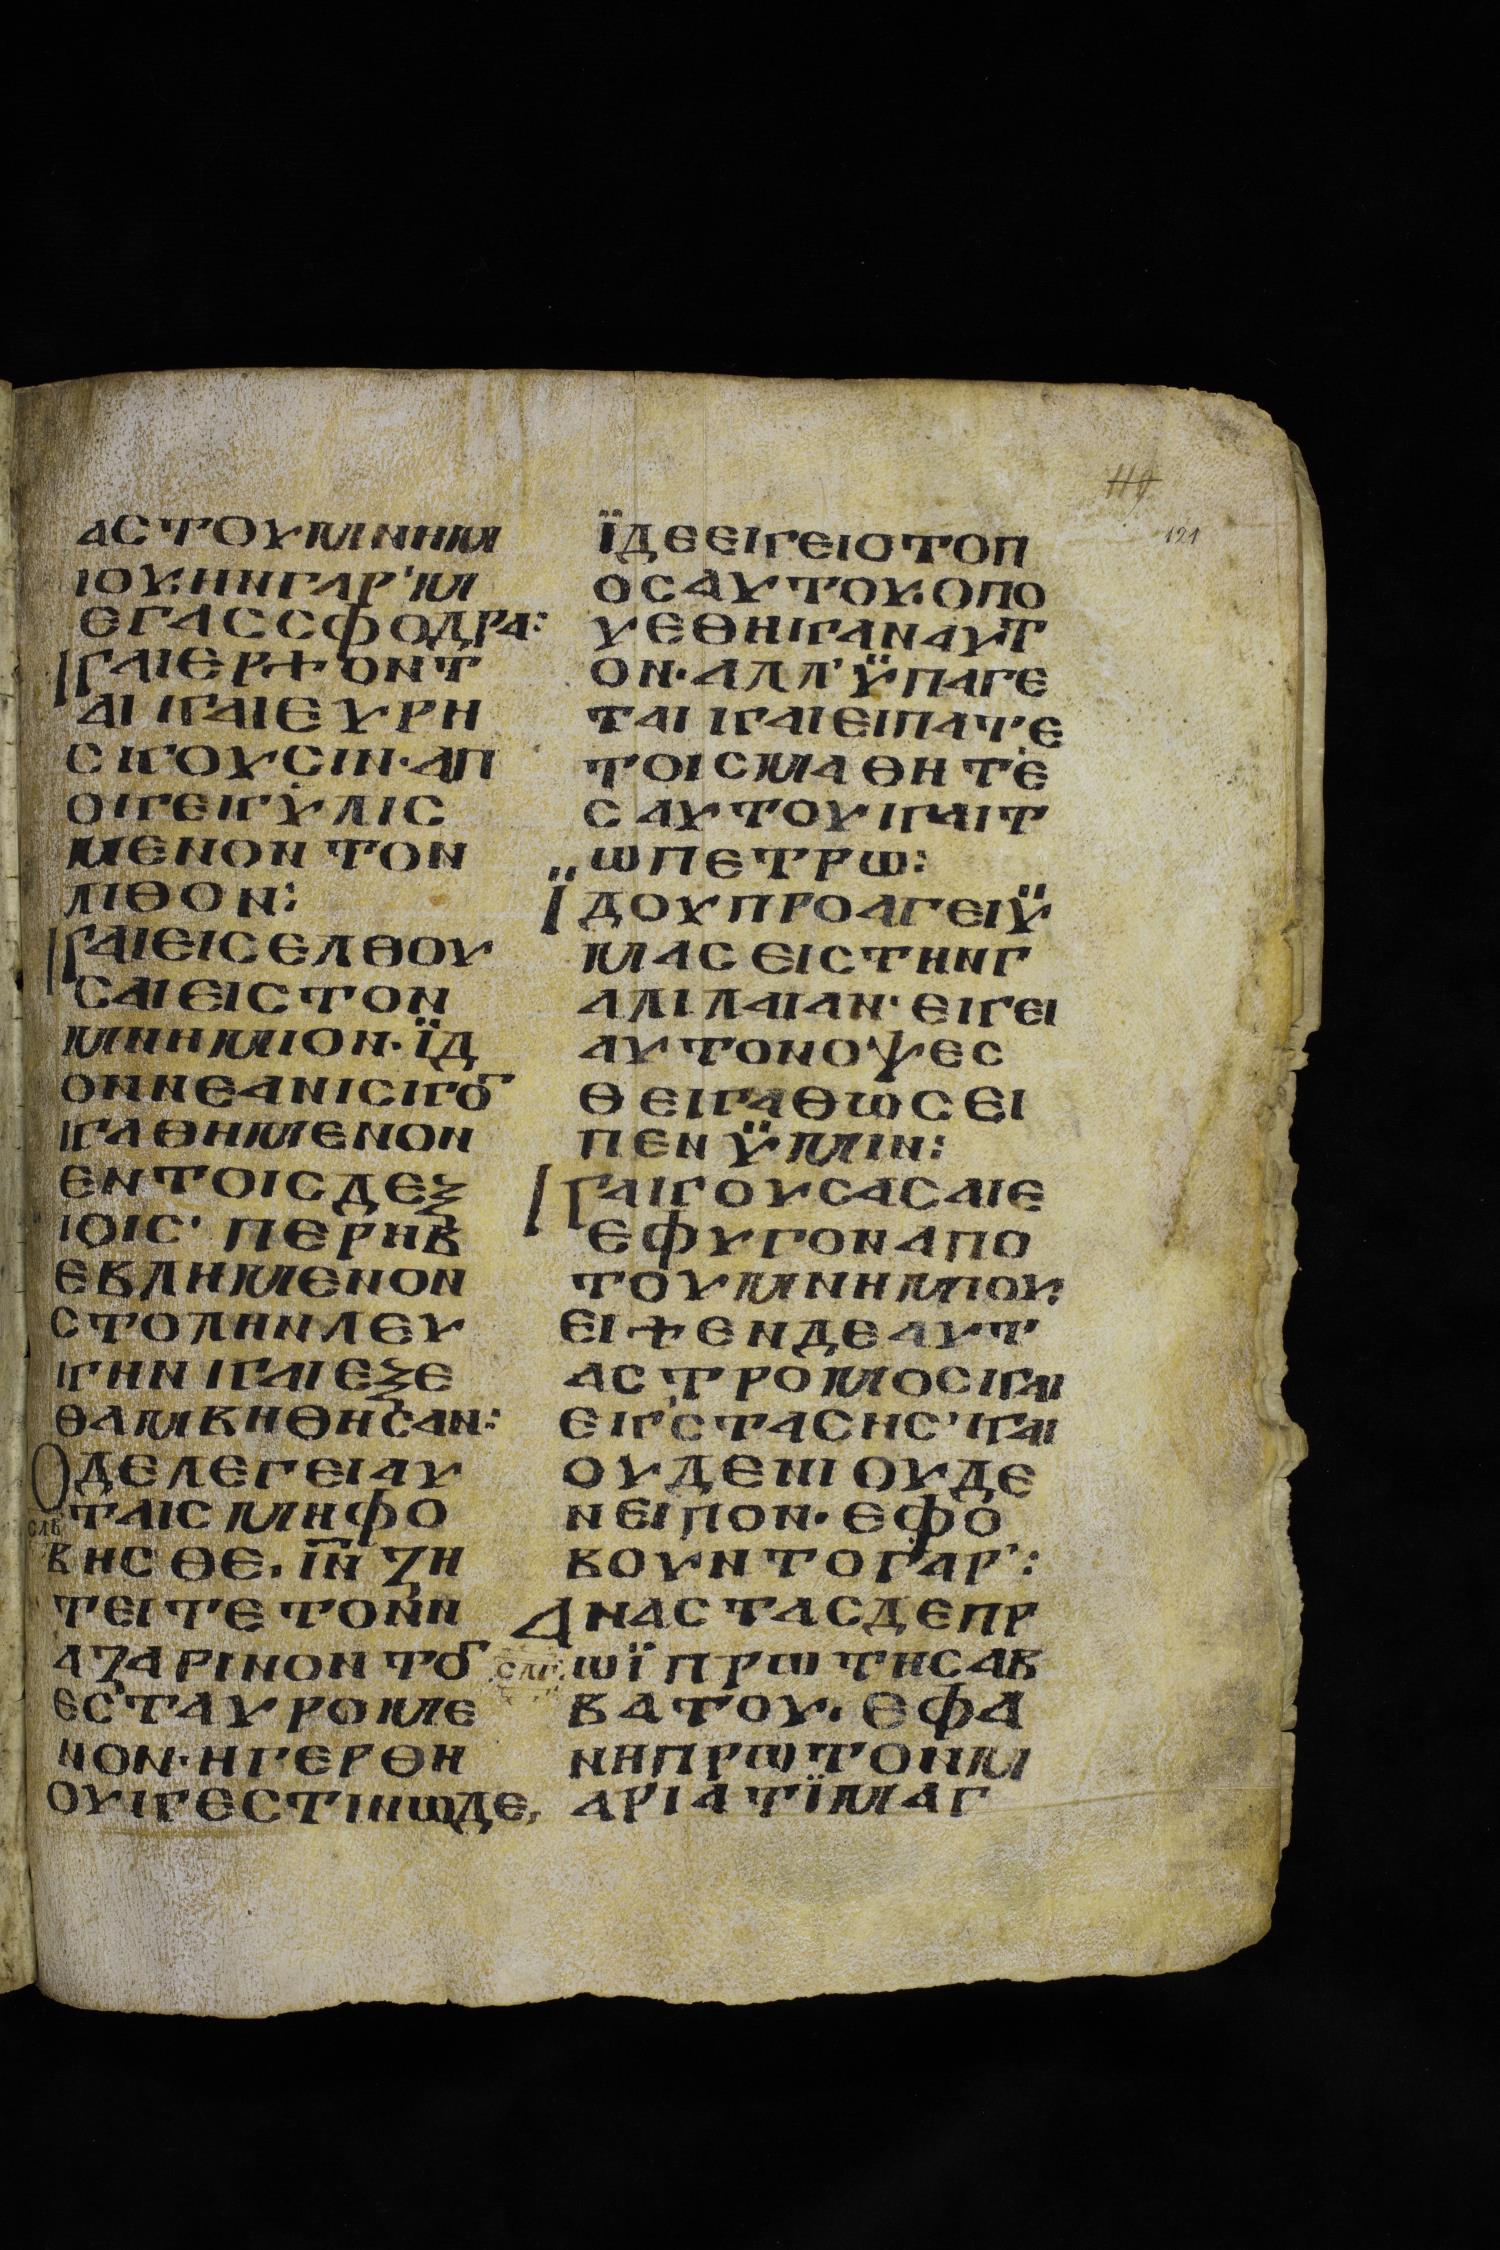 ΑСΤΟΥΜΝΗΜ
ΙΟΥ:ΗΝΓΑΡ'Μ
ΕΓΑССΦΟΔΡΑ:
ΚΑΙΕΡΧΟΝΤ
ΑΙΚΑΙΕΥΡΗ
СΚΟΥСΙΝ·ΑΠ
ΟΚΕΚΥΛΙС
ΜΕΝΟΝΤΟΝ
ΛΙΘΟΝ:
ΚΑΙΕΙСΕΛΘΟΥ
СΑΙΕΙСΤΟΝ
ΜΝΗΜΙΟΝ·ΪΔ
ΟΝΝΕΑΝΙСΚΟ̅
ΚΑΘΗΜΕΝΟΝ
ΕΝΤΟΙСΔΕΞ
ΙΟΙС'ΠΕΡΗΒ
ΕΒΛΗΜΕΝΟΝ
СΤΟΛΗΝΛΕΥ
ΚΗΝΚΑΙΕΞΕ
ΘΑΜΒΗΘΗСΑΝ:
ΟΔΕΛΕΓΕΙΑΥ
ΤΑΙСΜΗΦΟ
СΛΒ
ΒΗСΘΕ,Ι̅Ν̅ΖΗ
ΤΕΙΤΕΤΟΝΝ
ΑΖΑΡΙΝΟΝΤΟ̅
ΕСΤΑΥΡΟΜΕ
ΝΟΝ·ΗΓΕΡΘΗ
ΟΥΚΕСΤΙΝΩΔΕ,
119
121
ΪΔΕΕΚΕΙΟΤΟΠ
ΟСΑΥΤΟΥ:ΟΠΟ
ΥΕΘΗΚΑΝΑΥΤ
ΟΝ·ΑΛΛ'ΫΠΑΓΕ
ΤΑΙΚΑΙΕΙΠΑΤΕ
ΤΟΙСΜΑΘΗΤΕ
СΑΥΤΟΥΚΑΙΤ
ΩΠΕΤΡΩ:
ΪΔΟΥΠΡΟΑΓΕΙΫ
ΜΑСΕΙСΤΗΝΓ
ΑΛΙΛΑΙΑΝ·ΕΚΕΙ
ΑΥΤΟΝΟΨΕС
ΘΕΚΑΘΩСΕΙ
ΠΕΝΫΜΙΝ:
ΚΑΙΚΟΥСΑСΑΙΕ
ΕΦΥΓΟΝΑΠΟ
ΤΟΥΜΝΗΜΙΟΥ:
ΕΙΧΕΝΔΕΑΥΤ
ΑСΤΡΟΜΟСΚΑΙ
ΕΚ'СΤΑСΗС'ΚΑΙ
ΟΥΔΕΝΙΟΥΔΕ
ΝΕΙΠΟΝ·ΕΦΟ
ΒΟΥΝΤΟΓΑΡ':
ΑΝΑСΤΑСΔΕΠΡ
СΛΓ
ΩΪΠΡΩΤΗСΑΒ
ΒΑΤΟΥ·ΕΦΑ
ΝΗΠΡΩΤΟΝΜ
ΑΡΙΑΤΪΜΑΓ